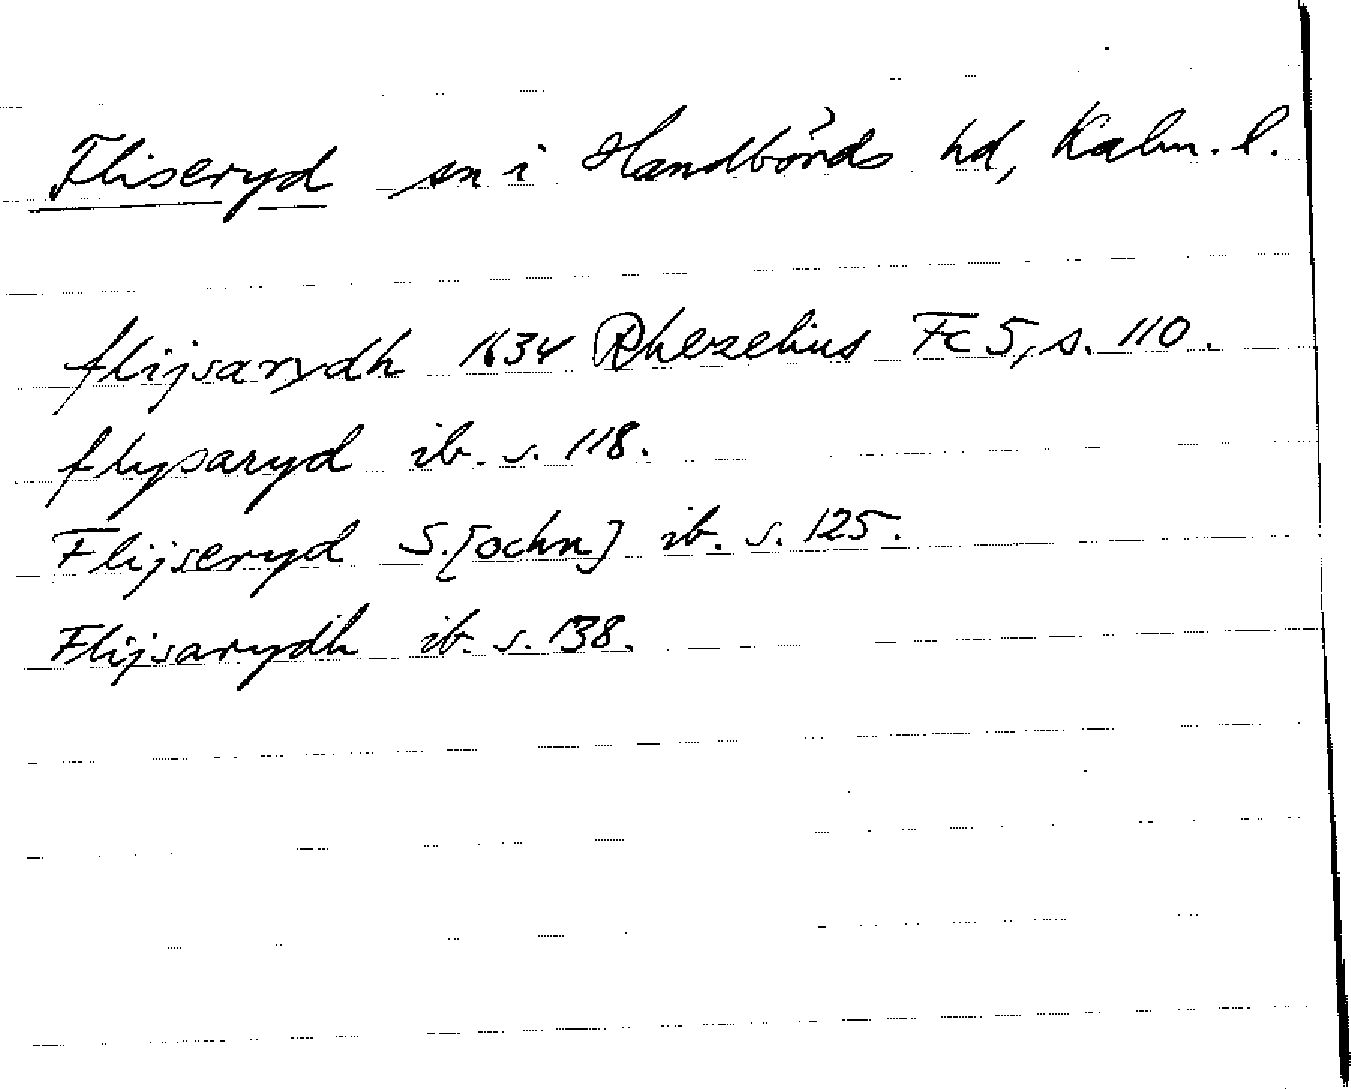 Fliseryd sn i Handbörds hd, Kalm. l.
flijsarydh 1634 Rhezelius Fc 5, s. 110.
flysaryd ib. s. 118.
Flijseryd S.[ochn] ib. s. 125.
Flijsarydh ib. s. 138.